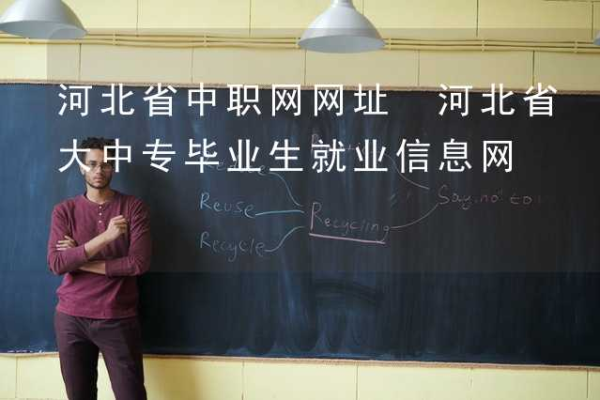 河北省中职网网址 河北省
大中专毕业生就业信息网
Reuse
Recycling
Say no to
Recycle